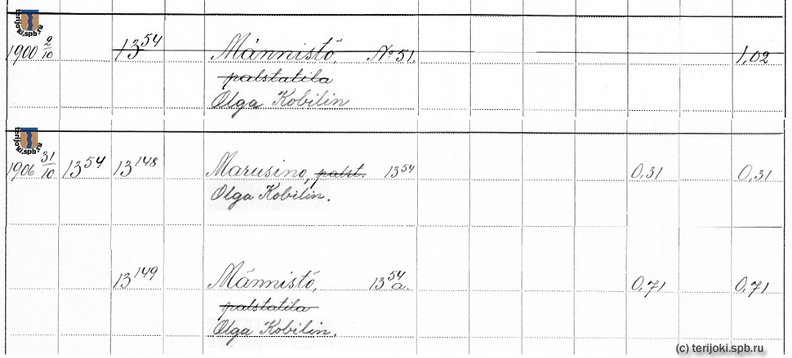 terijoki.spb.ru
1900 9/10 13⁵⁴ Männistö, No 51. 1,02
palstatila
Olga Kobilin
terijoki.spb.ru
1906 31/10 13⁵⁴ 13¹⁴⁸ Marusino, palst. 13⁵⁴ 0,31 0,31
Olga Kobilin.
13¹⁴⁹ Männistö, 13⁵⁴a. 0,71 0,71
palstatila
Olga Kobilin.
(c) terijoki.spb.ru